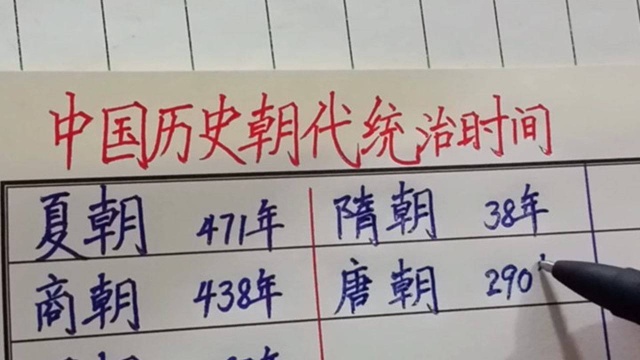 中国历史朝代统治时间
夏朝 471年 隋朝 38年
商朝 438年 唐朝 290